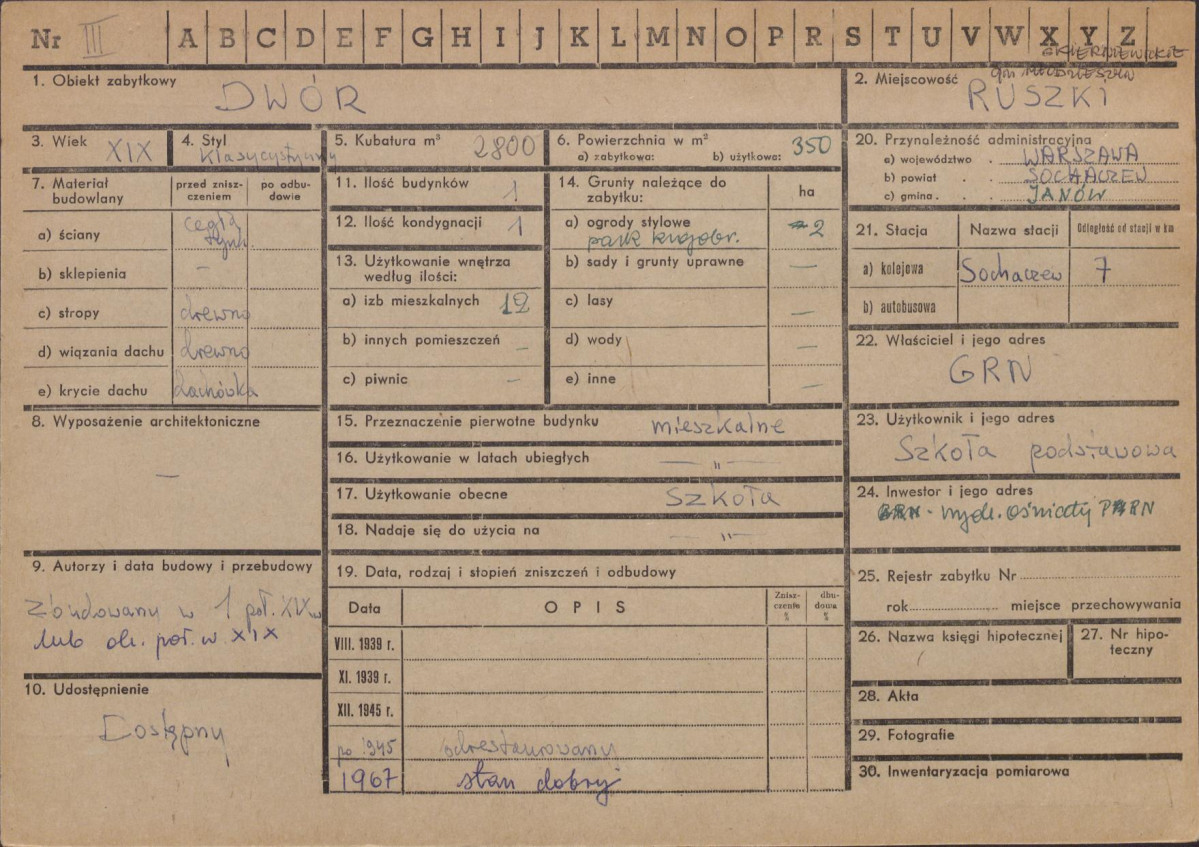 Nr III A B C D E F G H I J K L M N O P R S T U V W X Y Z
SKIERNIEWICKIE
1. Obiekt zabytkowy
DWÓR
2. Miejscowość gm MŁODZIESZYN
RUSZKI
3. Wiek XIX
4. Styl
klasycystyczny
5. Kubatura m³ 2800
6. Powierzchnia w m²
a) zabytkowa: b) użytkowa: 350
7. Materiał budowlany
przed znisz-
czeniem
po odbu-
dowie
a) ściany cegła
tynk.
b) sklepienia –
c) stropy drewno
d) wiązania dachu drewno
e) krycie dachu dachówka
8. Wyposażenie architektoniczne
—
9. Autorzy i data budowy i przebudowy
Zbudowany w 1 poł. XIX w
lub ok. poł. w XIX
10. Udostępnienie
Dostępny
11. Ilość budynków 1
12. Ilość kondygnacji 1
13. Użytkowanie wnętrza
według ilości:
a) izb mieszkalnych 12
b) innych pomieszczeń –
c) piwnic –
14. Grunty należące do
zabytku: ha
a) ogrody stylowe 2
park krajobr.
b) sady i grunty uprawne —
c) lasy —
d) wody —
e) inne —
15. Przeznaczenie pierwotne budynku mieszkalne
16. Użytkowanie w latach ubiegłych — „ —
17. Użytkowanie obecne Szkoła
18. Nadaje się do użycia na — „ —
19. Data, rodzaj i stopień zniszczeń i odbudowy
Data OPIS Znisz-
czenie
%
dbu-
dowa
%
VIII. 1939 r.
XI. 1939 r.
XII. 1945 r.
po 1945 odrestaurowany
1967 stan dobry
20. Przynależność administracyjna
a) województwo . WARSZAWA
b) powiat . . SOCHACZEW
c) gmina . . JANÓW
21. Stacja Nazwa stacji Odległość od stacji w km
a) kolejowa Sochaczew 7
b) autobusowa
22. Właściciel i jego adres
GRN
23. Użytkownik i jego adres
Szkoła podstawowa
24. Inwestor i jego adres
wydz. oświaty PPRN
25. Rejestr zabytku Nr
rok miejsce przechowywania
26. Nazwa księgi hipotecznej
27. Nr hipo-
teczny
28. Akta
29. Fotografie
30. Inwentaryzacja pomiarowa